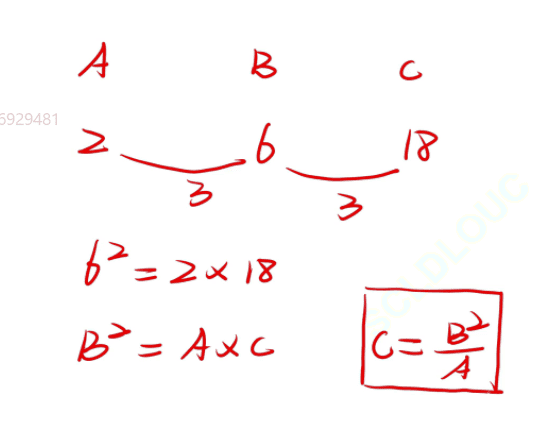 A B C
6929481
2 6 18
3 3
6² = 2 × 18
B² = A × C
C = B²/A